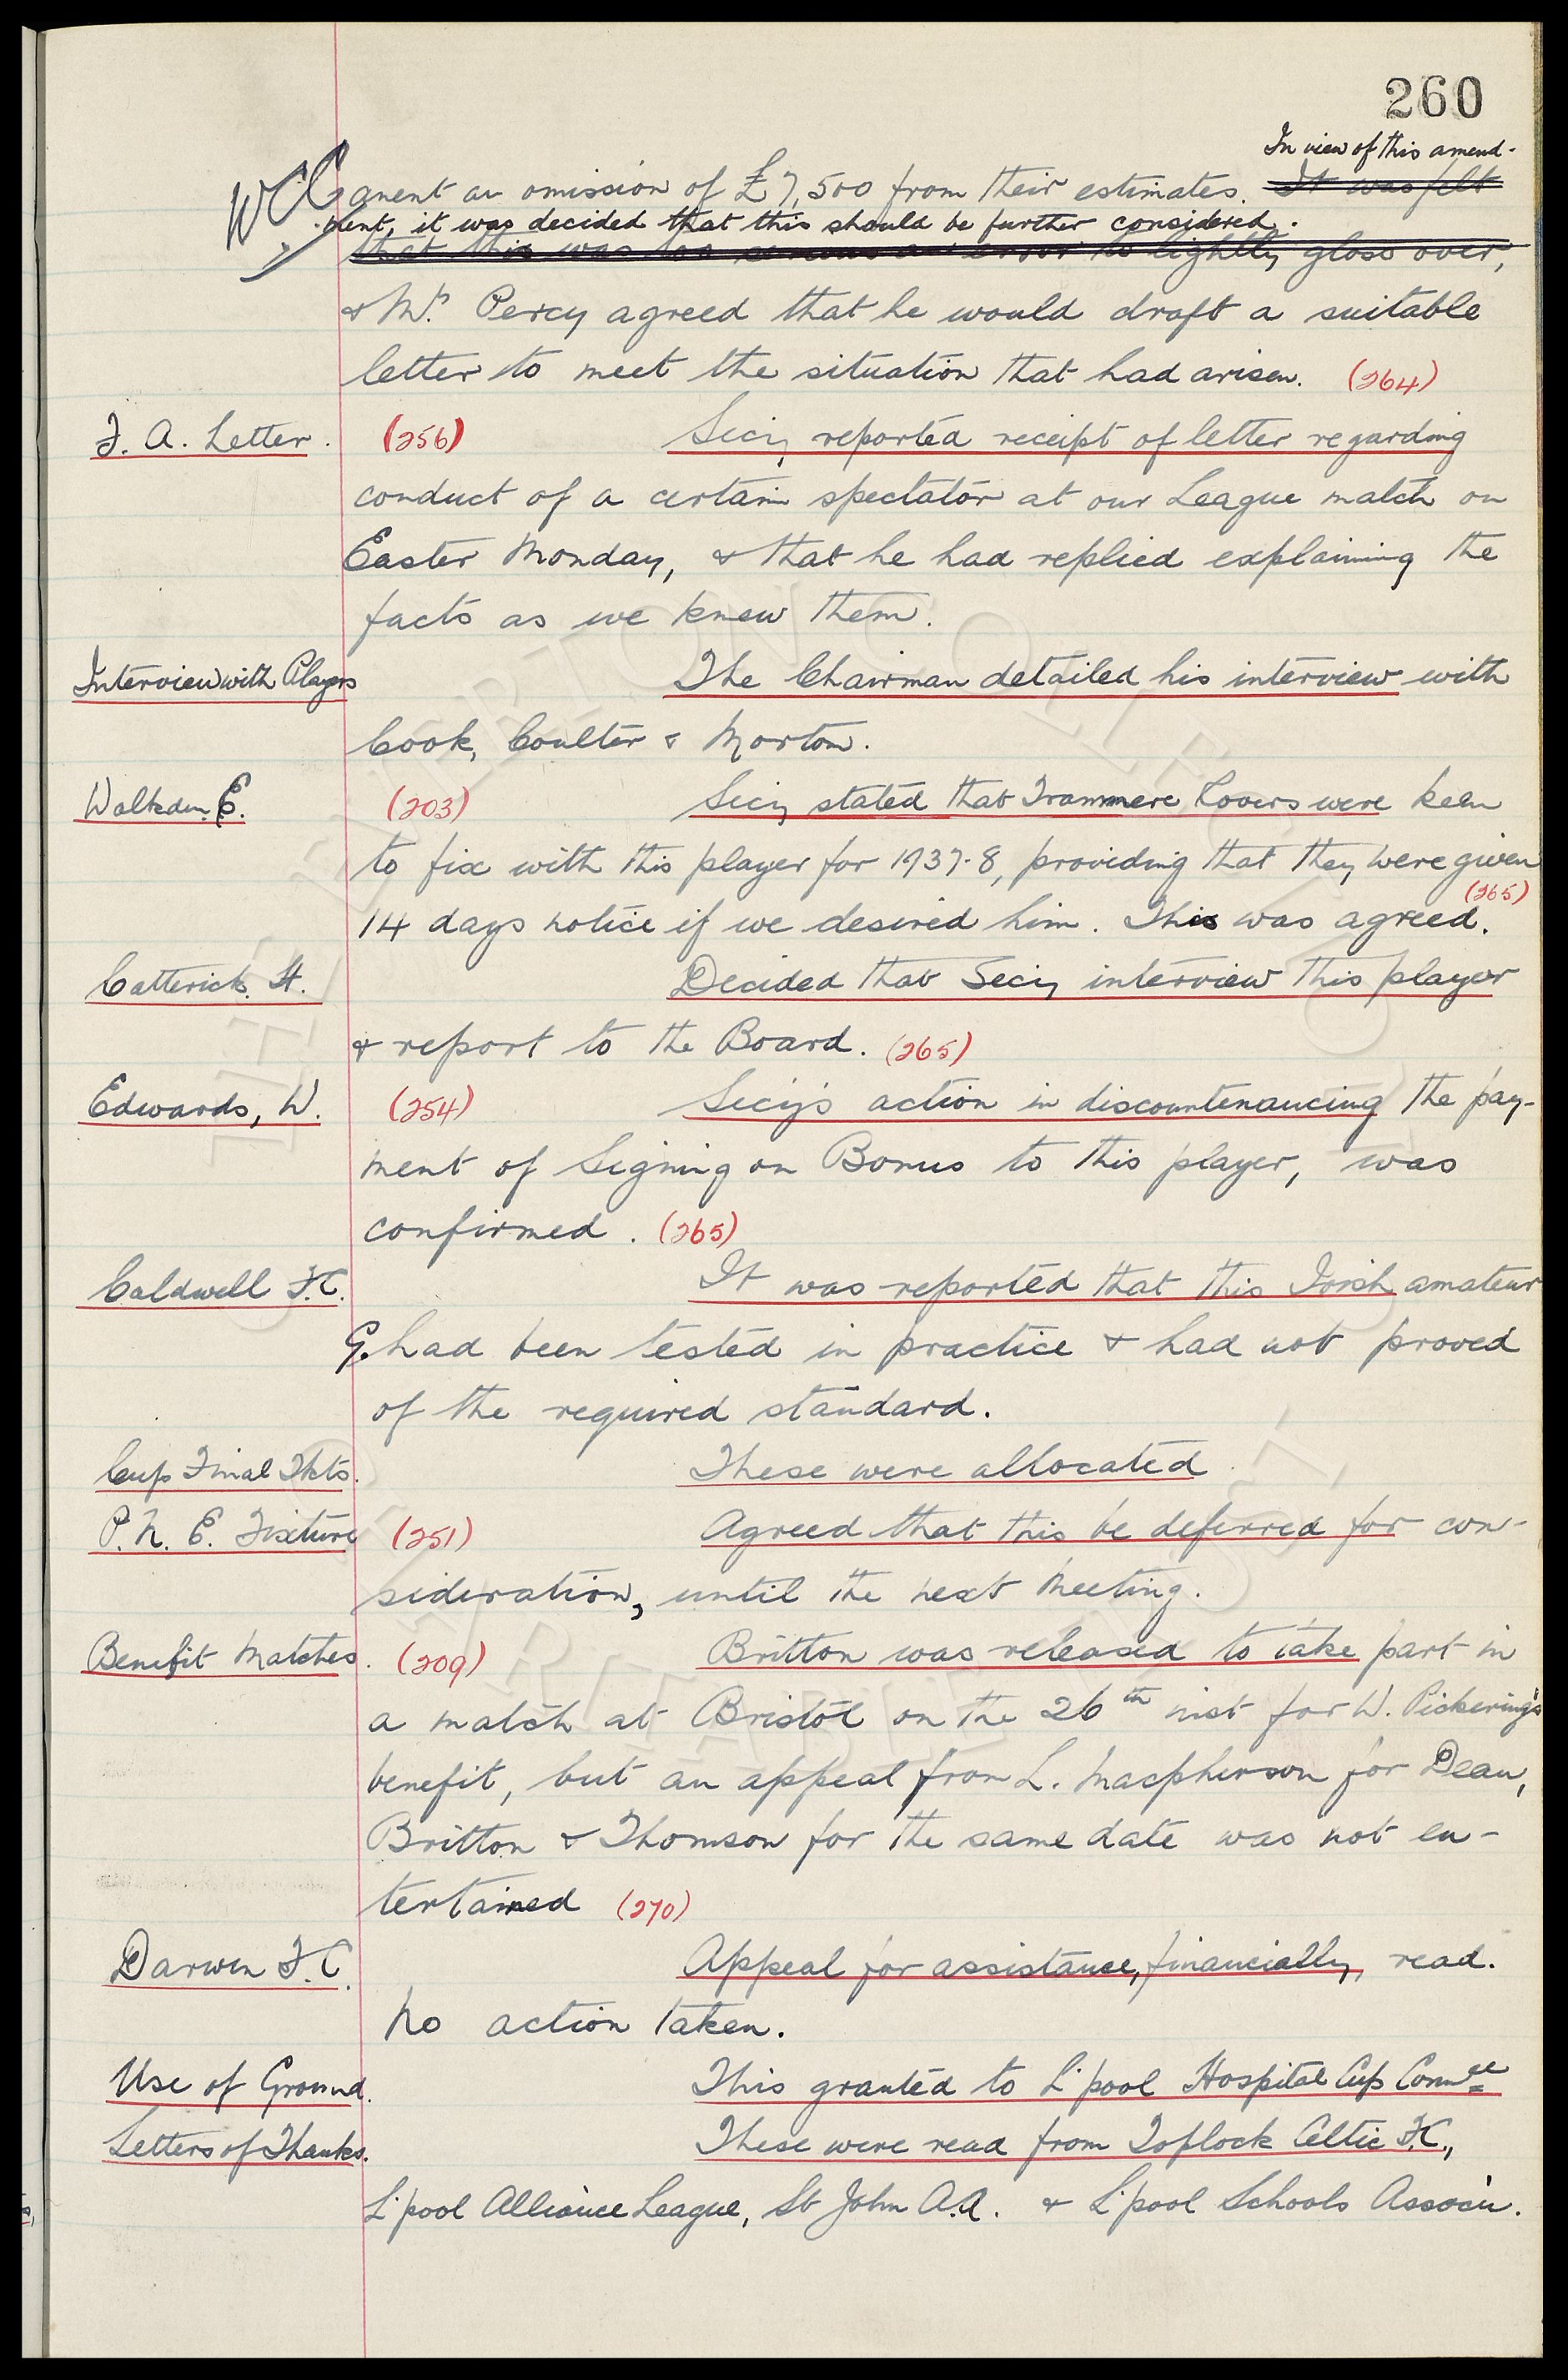 260
In view of this amend-
WCG gment an omission of £7,500 from their estimates. It was felt
ment, it was decided that this should be further considered.
that this was too serious an error to lightly gloss over,
& Mr. Percy agreed that he would draft a suitable
letter to meet the situation that had arisen. (264)
F. A. Letter. (256) Secy reported receipt of letter regarding
conduct of a certain spectator at our League match on
Easter Monday, & that he had replied explaining the
facts as we knew them.
Interview with Players The Chairman detailed his interview with
Cook, Coulter & Morton.
Walkden. E. (203) Secy stated that Tranmere Rovers were keen
to fix with this player for 1937-8, providing that they were given
14 days notice if we desired him. This was agreed. (265)
Catterick. H. Decided that Secy interview this player
& report to the Board. (265)
Edwards, W. (254) Secy's action in discountenancing the pay-
ment of Signing on Bonus to this player, was
confirmed. (265)
Caldwell F.C. It was reported that this Irish amateur
G. had been tested in practice & had not proved
of the required standard.
Cup Final Tkts. These were allocated.
P. N. E. Fixture (251) Agreed that this be deferred for con-
sideration, until the next Meeting.
Benefit Matches. (209) Britton was released to take part in
a match at Bristol on the 26th inst for W. Pickering's
benefit, but an appeal from L. Macpherson for Dean,
Britton & Thomson for the same date was not en-
tertained (270)
Darwen F.C. Appeal for assistance, financially, read.
No action taken.
Use of Ground. This granted to L'pool Hospital Cup Comee
Letters of Thanks. These were read from Toflock Celtic F.C.,
L'pool Alliance League, St John A.A. & L'pool Schools Assocn.